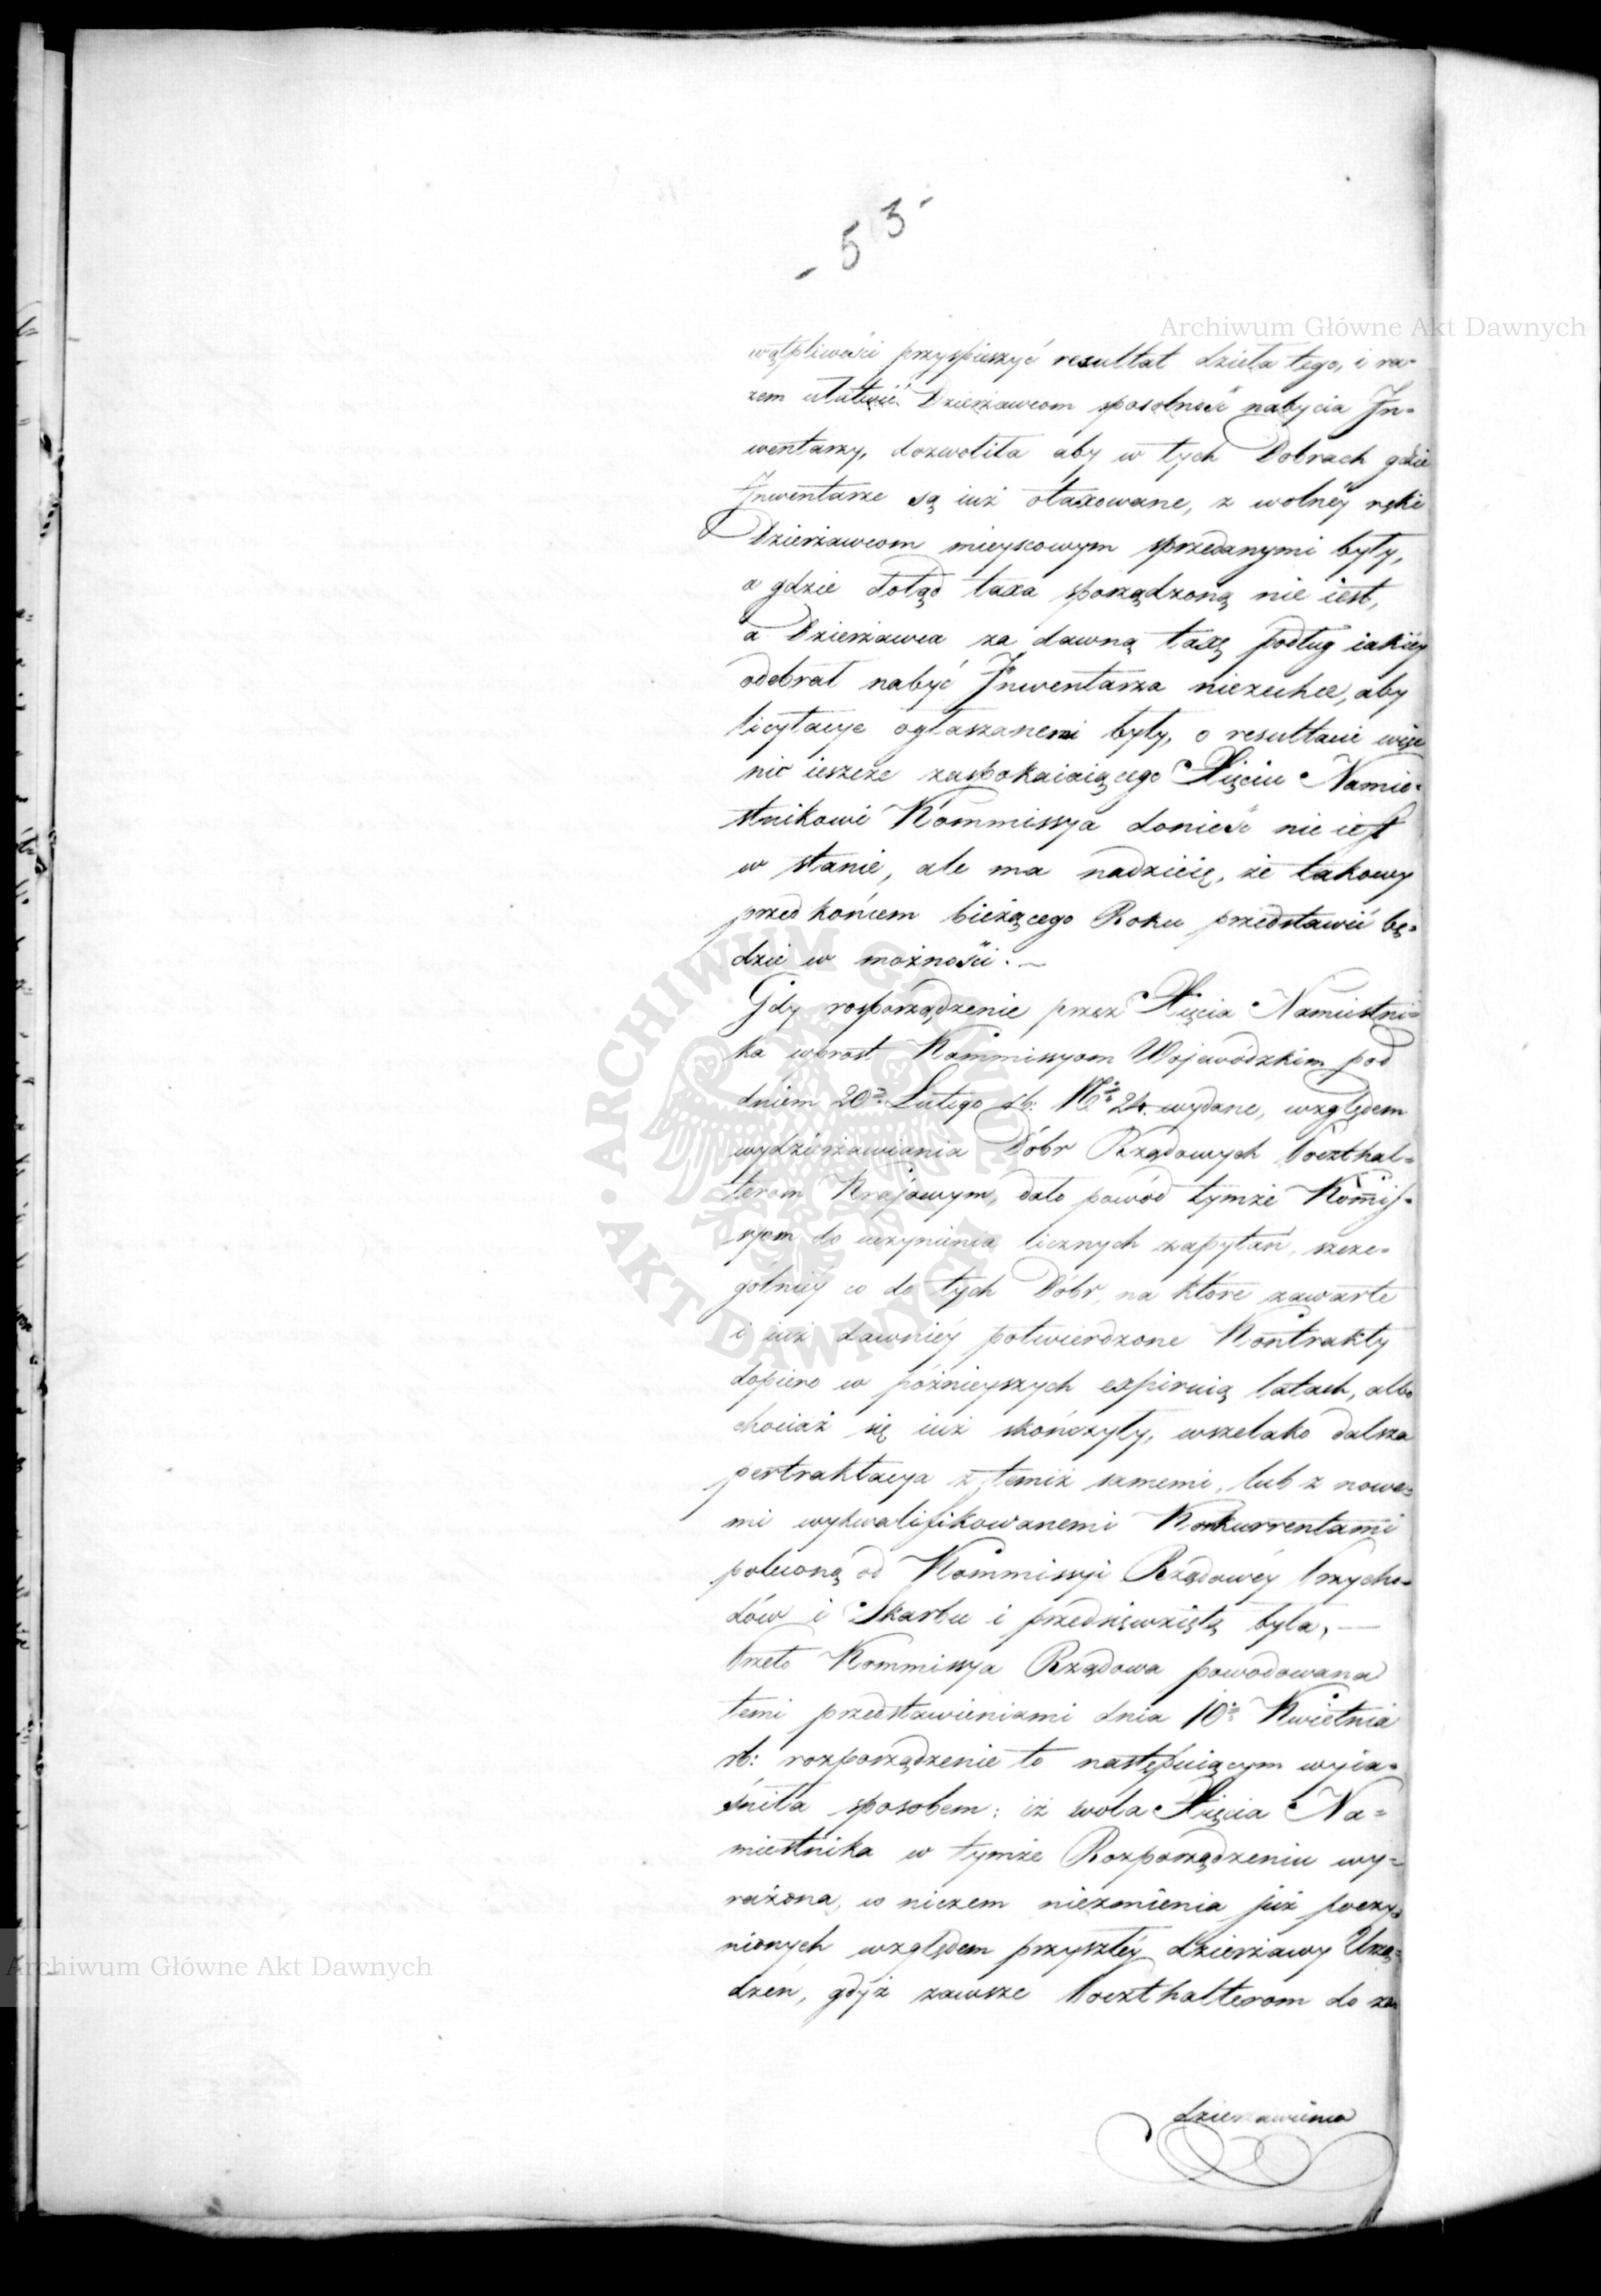 - 53 -
Archiwum Główne Akt Dawnych
wątpliwości przyspieszyć resultat dzieła tego, i ra-
zem ułatwić Dzierżawcom sposobność nabycia In-
wentarzy, dozwoliła aby w tych Dobrach gdzie
Inwentarze są iuż otaxowane, z wolnéy ręki
Dzierżawcom mieyscowym sprzedanymi były,
a gdzie dotąd taxa sporządzoną nie iest,
a Dzierżawca za dawną taxę podług iakiéy
odebrał nabyć Inwentarza niezechce, aby
licytacye ogłaszanemi były, o resultacie więc
nic ieszcze zaspokaiaiącego Xięciu Namie-
stnikowi Kommissya donieść nie iest
w stanie, ale ma nadzieię, że takowy
przed końcem bieżącego Roku przedstawić bę-
dzie w możności. —
Gdy rosporządzenie przez Xięcia Namiestni-
ka wprost Kommissyom Wojewódzkim pod
dniem 20 Lutego rb: No 24. wydane, względem
wydzierżawiania Dóbr Rządowych Poczthal-
terom Krajowym, dało powód tymże Komis-
syom do uczynienia licznych zapytań, szcze-
gólniéy co do tych Dóbr, na które zawarte
i iuż dawniéy potwierdzone Kontrakty
dopiero w późnieyszych expiruią latach, albo
chociaż się iuż skończyły, wszelako dalsza
pertraktacya z temiż samemi, lub z nowe-
mi wykwalifikowanemi Konkurrentami
poleconą od Kommissyi Rządowéy Przycho-
dów i Skarbu i przedsięwziętą była, —
Przeto Kommissya Rządowa powodowana
temi przedstawieniami dnia 10 Kwietnia
rb: rozporządzenie to następuiącym wyia-
śniła sposobem: iż wola Xięcia Na-
miestnika w tymże Rozporządzeniu wy-
rażona, w niczem niezmienia już poczy-
nionych względem przyszłéy dzierżawy Urzą-
dzeń, gdyż zawsze Poczthalterom do za-
dzierżawienia
ARCHIWUM GŁÓWNE AKT DAWNYCH
Archiwum Główne Akt Dawnych